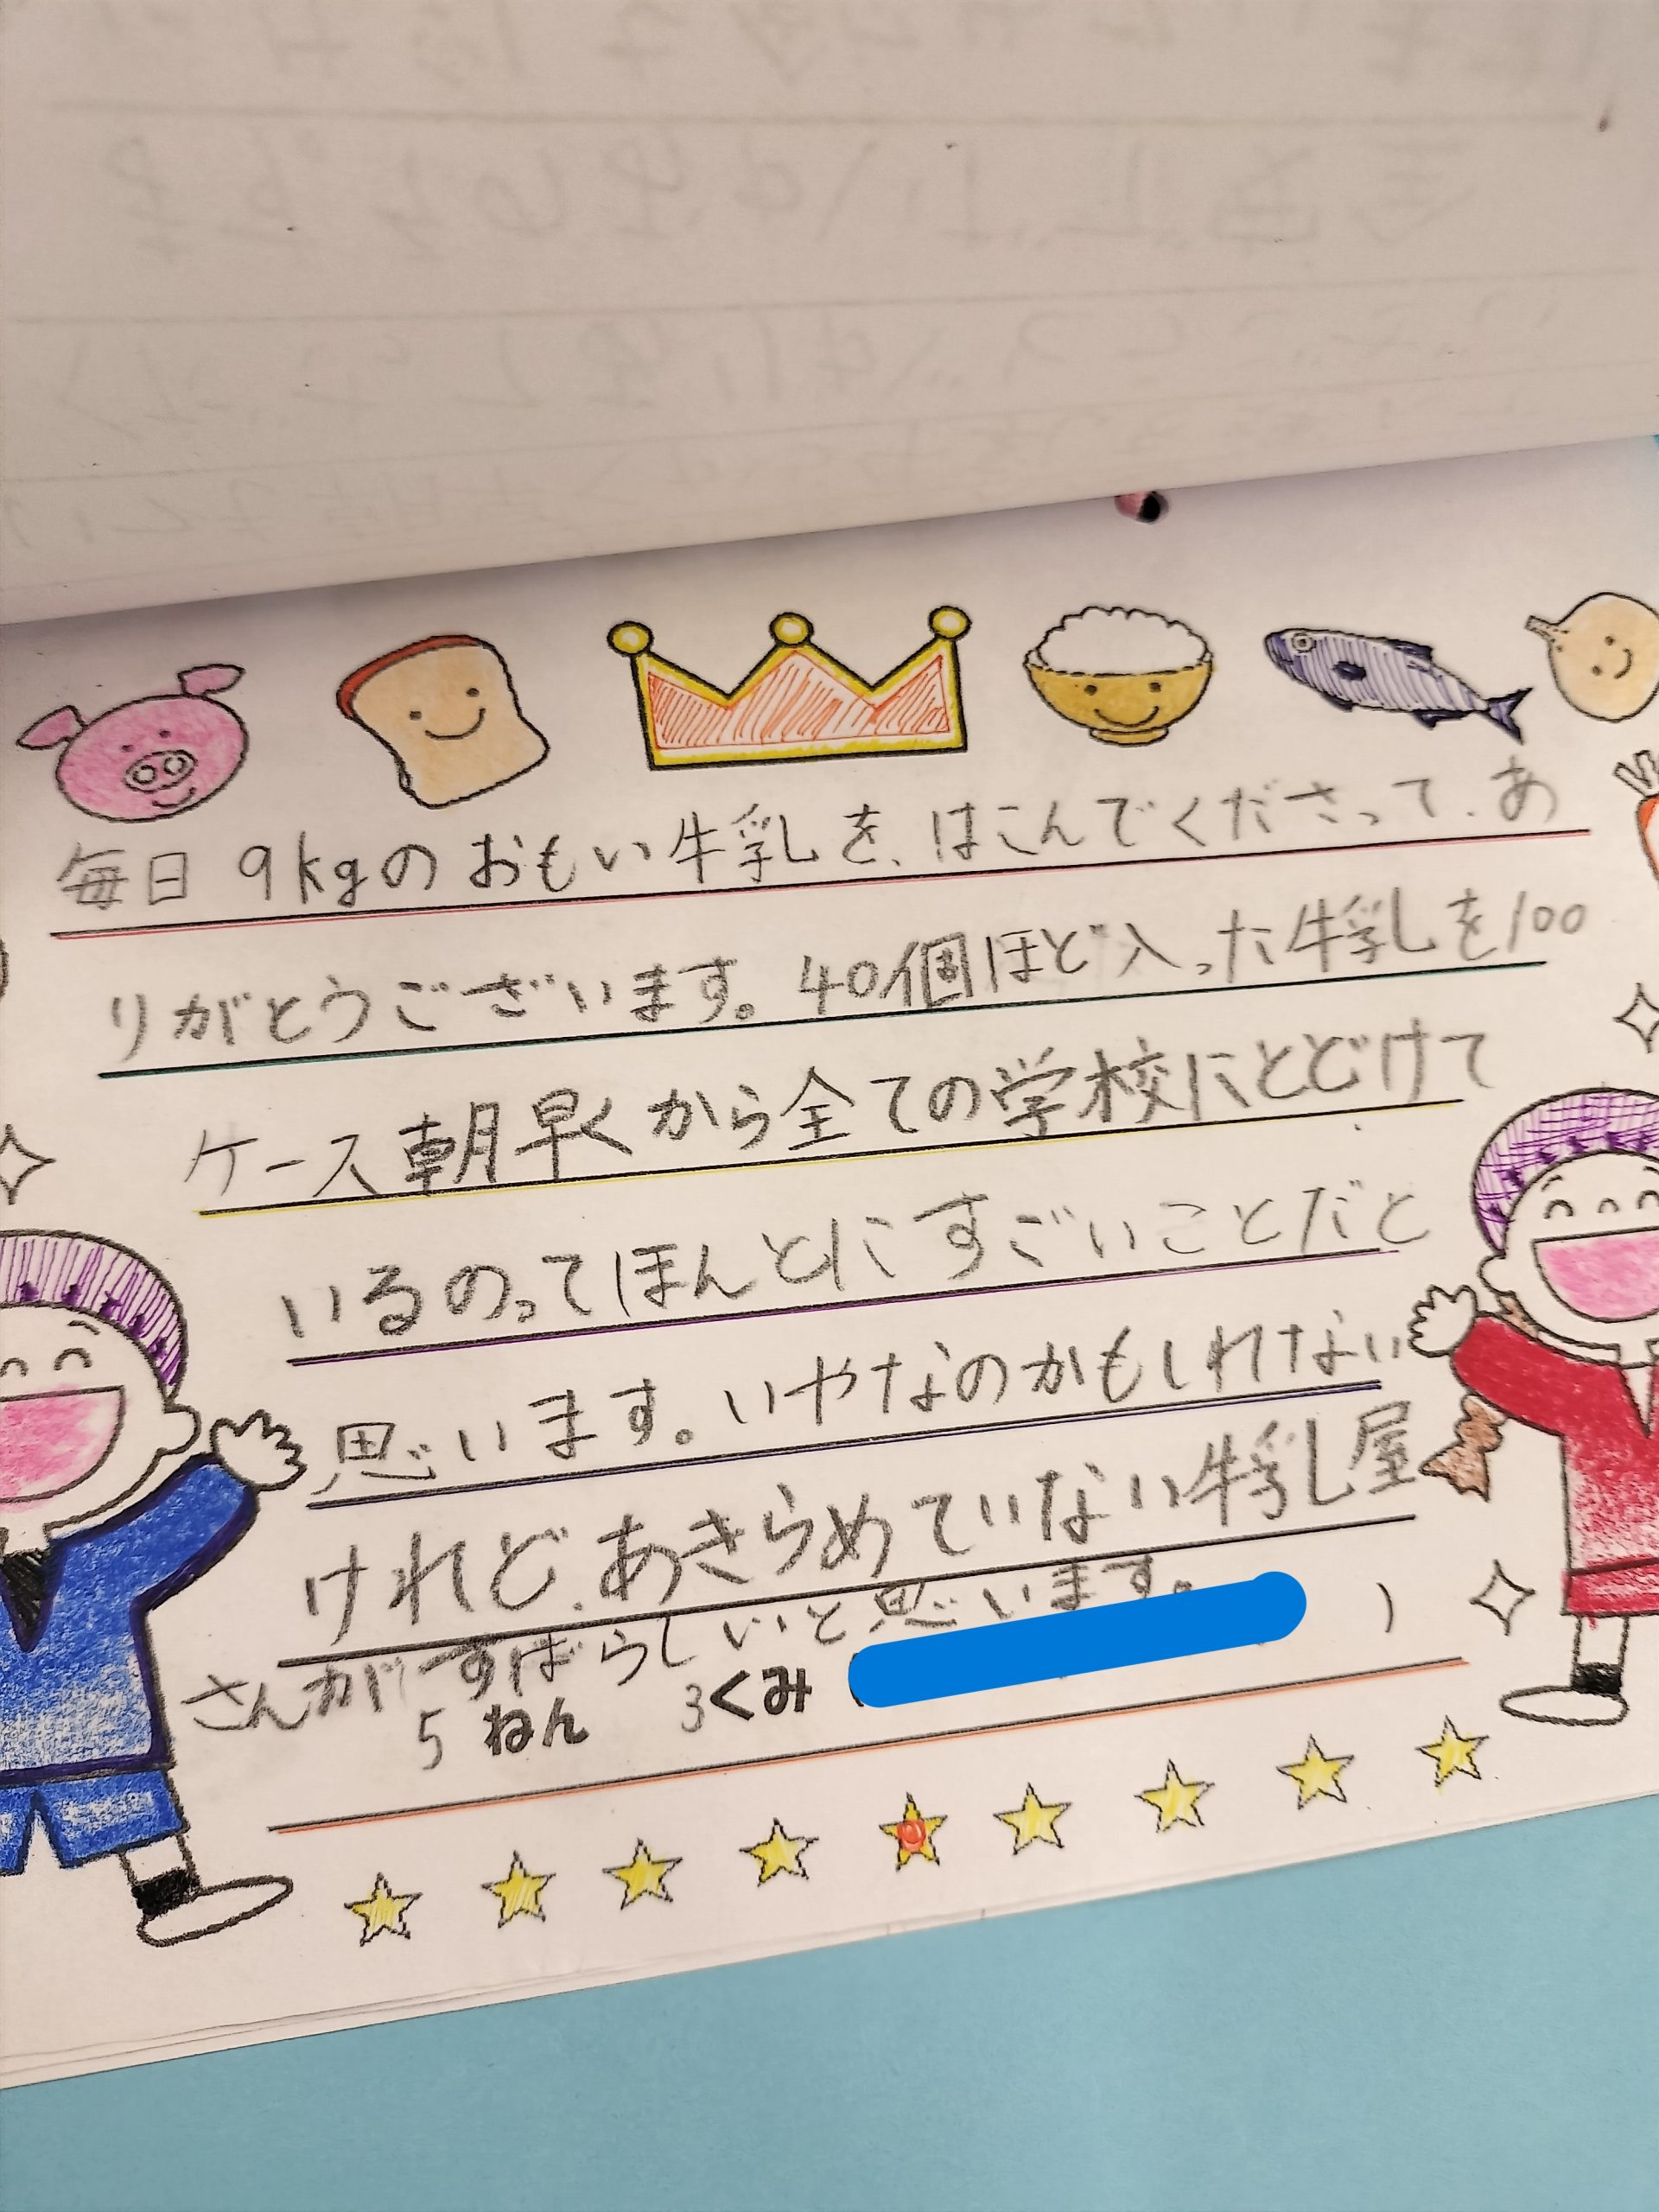 毎日9kgのおもい牛乳を、はこんでくださって、あ
りがとうございます。40個ほど入った牛乳を100
ケース朝早くから全ての学校にとどけて
いるのってほんとにすごいことだと
思います。いやなのかもしれない
けれど、あきらめていない牛乳屋
さんがすばらしいと思います。
5ねん 3くみ ( )